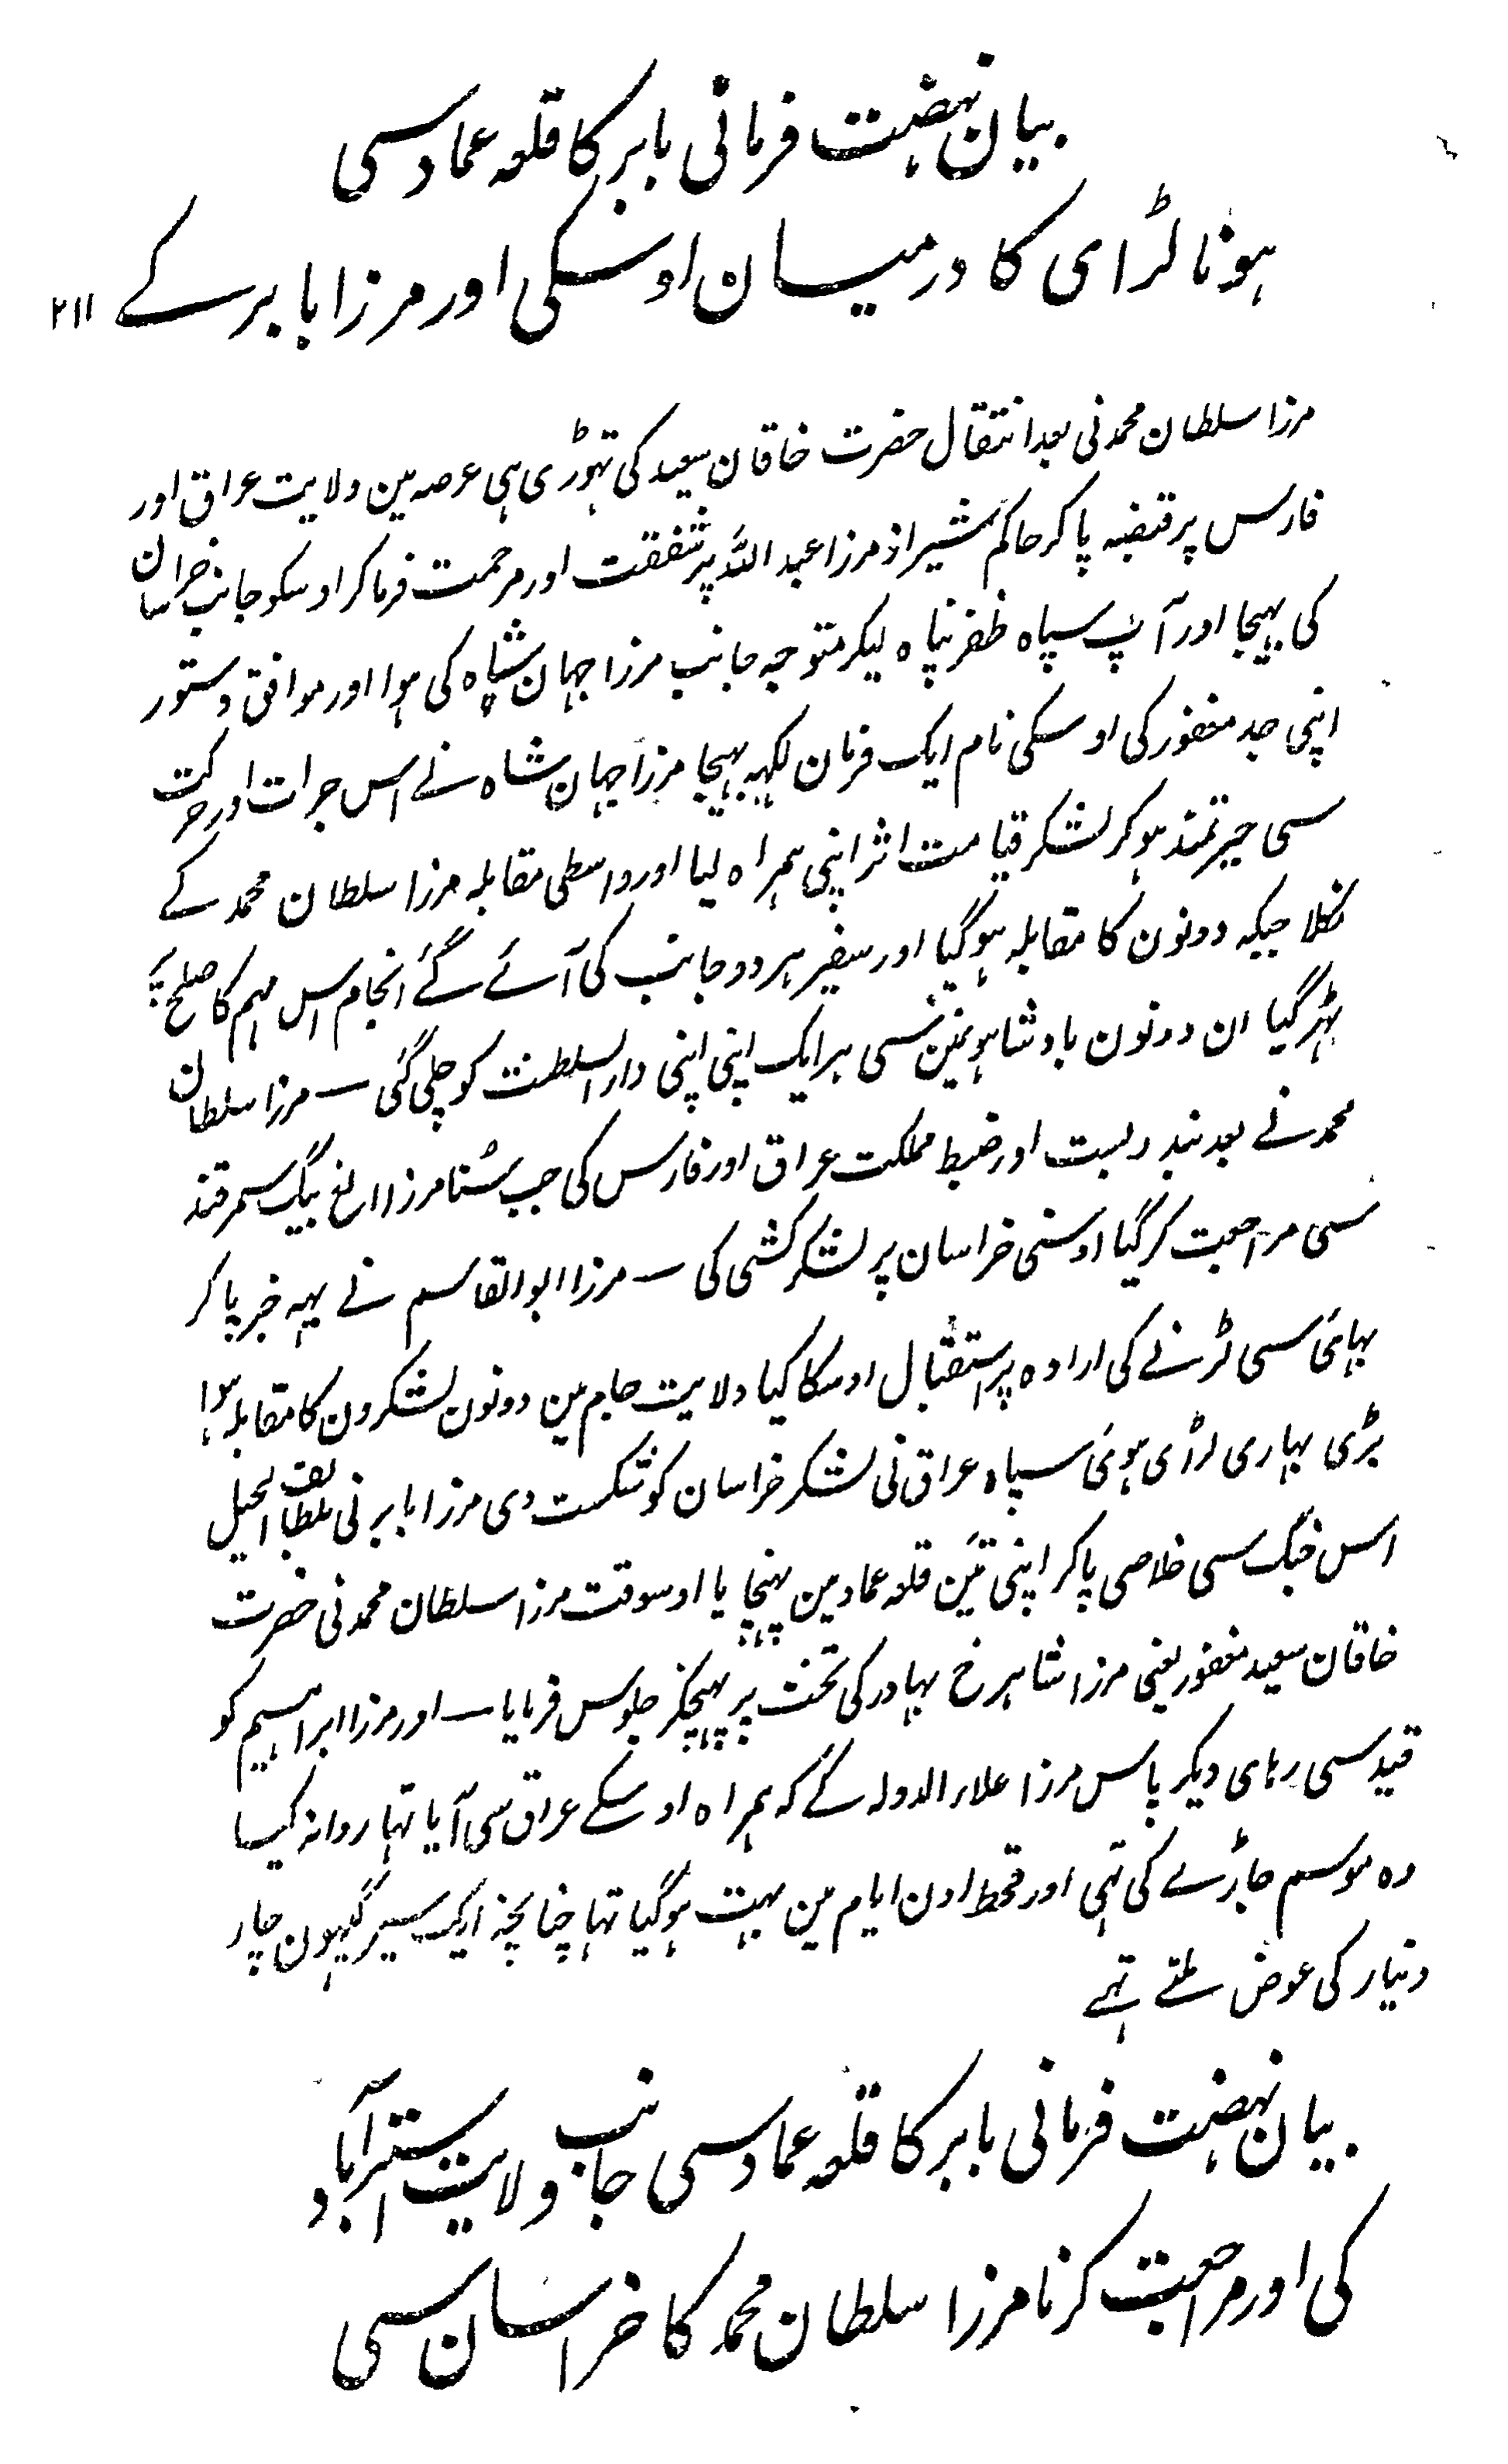 بیان نہضت فرمائی بابر کا قلعہ عماد سی
ہونا لڑای کا درمیان اوسکی اور مرزا بابر کے ۲۱۱
مرزا سلطان محمد نی بعد انتقال حضرت خاقان سعید کی تہوڑی ہی عرصہ مین ولایت عراق اور
فارس پر قبضہ پا کر حاکم شیراز مرزا عبد اللہ پر شفقت اور مرحمت فرما کر اوسکو جانب خراسان
کی بہیجا اور آپ سپاہ ظفر پناہ لیکر متوجہ جانب مرزا جہان شاہ کی ہوا اور موافق دستور
اپنی جد مغفور کی اوسکی نام ایک فرمان لکہہ بہیجا مرزا جہان شاہ نے اس جرات اور حرکت
سی حیرتمند ہو کر لشکر قیامت اثر اپنی ہمراہ لیا اور واسطی مقابلہ مرزا سلطان محمد کے
نکلا جبکہ دونون کا مقابلہ ہو گیا اور سفیر ہر دو جانب کی آئے گئے انجام اس مہم کا صلح پر
ٹہر گیا ان دونون بادشاہونمین سی ہر ایک اپنی اپنی دار السلطنت کو چلی گئی — مرزا سلطان
محمد نے بعد بند و بست اور ضبط مملکت عراق اور فارس کی جب سُنا مرزا الغ بیگ سمرقند
سی مراجعت کر گیا اوسنی خراسان پر لشکر کشی کی — مرزا ابو القاسم نے یہہ خبر پا کر
بہائی سی لڑنے کی ارادہ پر استقبال اوسکا کیا ولایت جام مین دونون لشکرون کا مقابلہ ہوا
بڑی بہاری لڑای ہوئی سپاہ عراق نی لشکر خراسان کو شکست دی مرزا بابر نی بلطایف الحیل
اس جنگ سی خلاصی پا کر اپنی تئین قلعہ عماد مین پہنچایا اوسوقت مرزا سلطان محمد نی حضرت
خاقان سعید مغفور یعنی مرزا شاہرخ بہادر کی تخت پر پہنچکر جلوس فرمایا — اور مرزا ابراہیم کو
قید سی رہای دیکر پاس مرزا علاء الدولہ کے کہ ہمراہ اوسکے عراق سی آیا تہا روانہ کیا
وہ موسم جاڑے کی تہی اور قحط اون ایام مین بہت ہو گیا تہا چنانچہ ایک سیر گیہون چار
دینار کی عوض ملتے تہے
بیان نہضت فرمائی بابر کا قلعہ عماد سی جانب ولایت استرآباد
کی اور مراجعت کرنا مرزا سلطان محمد کا خراسان سی